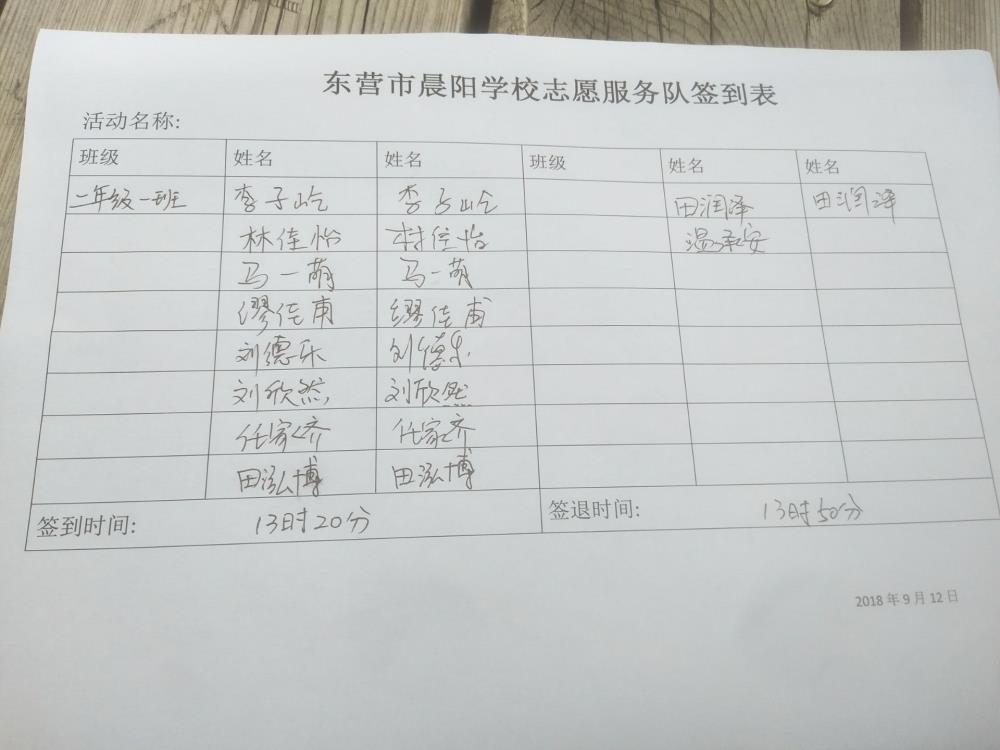 东营市晨阳学校志愿服务队签到表
活动名称:
班级 姓名 姓名 班级 姓名 姓名
二年级一班 李子屹 李子屹 田润泽 田润泽
林佳怡 林佳怡 温承安
马一萌 马一萌
缪佳甫 缪佳甫
刘德乐 刘德乐
刘欣然 刘欣然
任家济 任家济
田泓博 田泓博
签到时间: 13时20分 签退时间: 13时50分
2018年9月12日